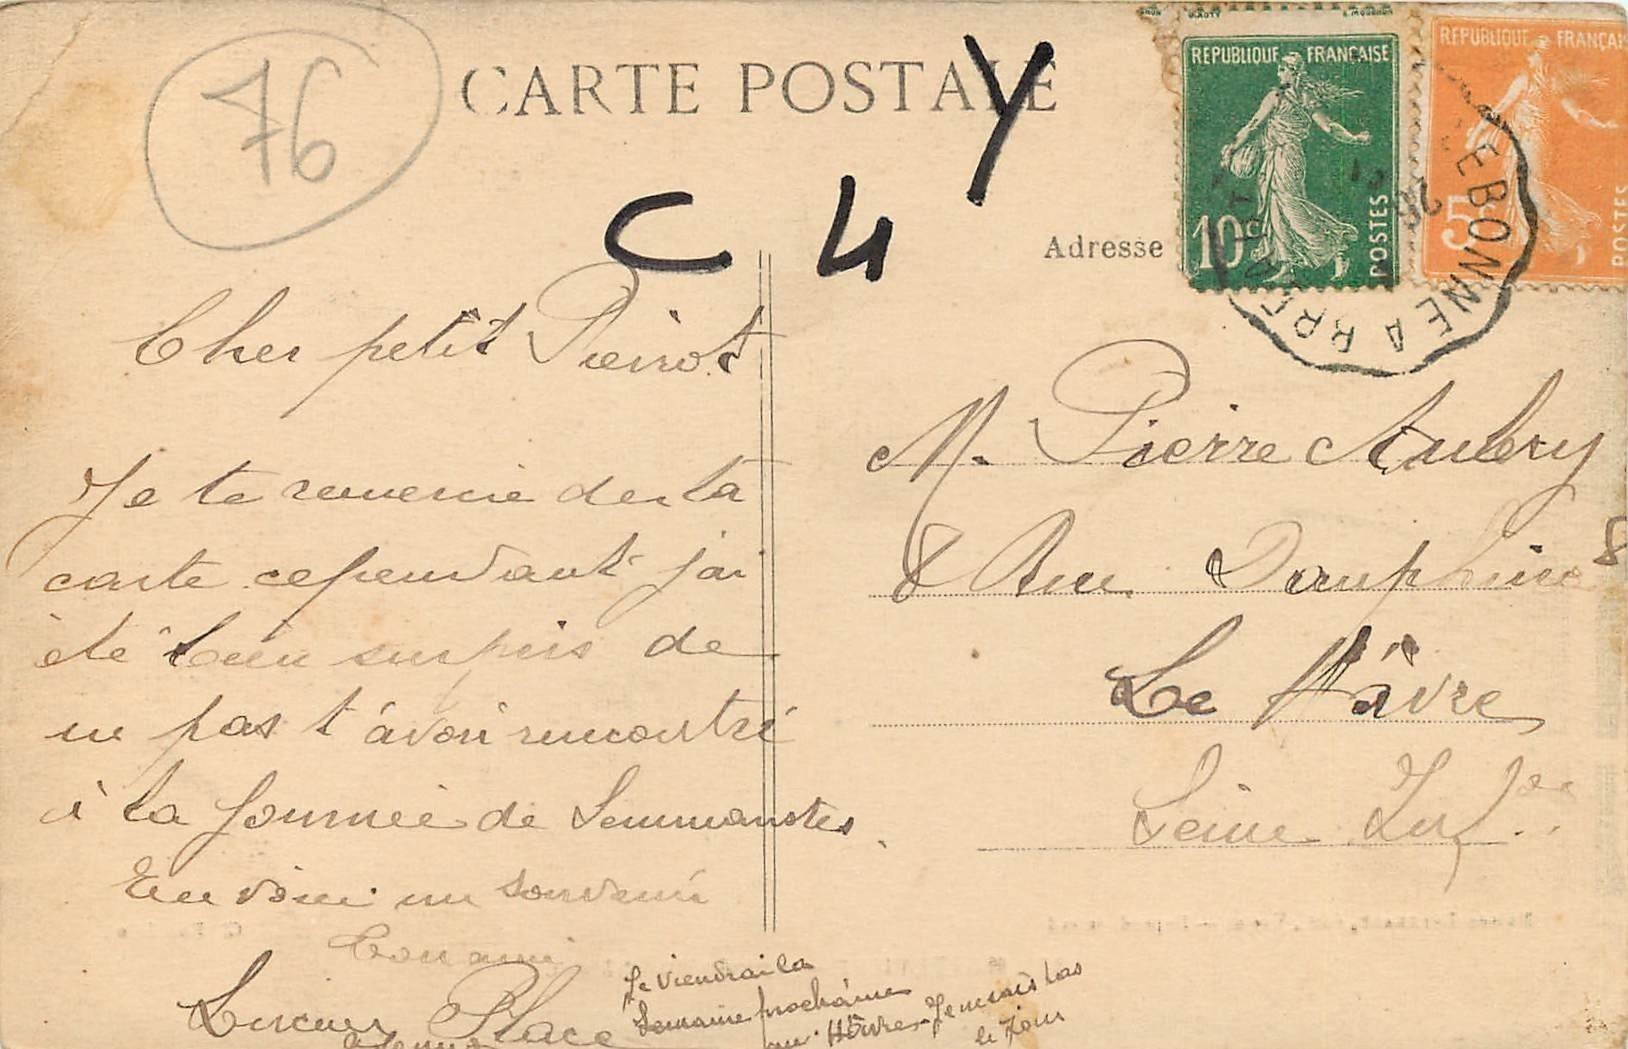 76
CARTE POSTALE
Y
C 4
REPUBLIQUE FRANÇAISE
10c
POSTES
REPUBLIQUE FRANÇAIS
5
POSTES
BONNE A BRE
Adresse
Cher petit Pierrot
Je te remercie de ta
carte cependant j'ai
été bien surpris de
ne pas t'avoir rencontré
à la journée de
En voici un souvenir
Ton ami
Lucien Place
Je viendrai la
Semaine prochaine
au Hâvre Je ne sais pas
le jour
M. Pierre Aubry
8 Rue Dauphine 8
Le Hâvre
Seine Infre